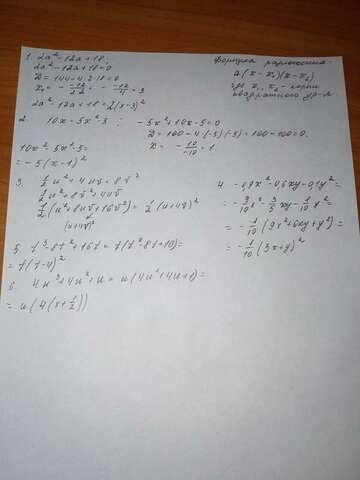 1. 2a² - 12a + 18.
2a² - 12a + 18 = 0
D = 144 - 4·2·18 = 0
x₁ = - -12/2·2 = - -12/4 = 3
2a² - 12a + 18 = 2(x-3)²
формула разложения
a(x - x₁)(x - x₂)
где x₁, x₂ - корни
квадратного ур-я.
2. 10x - 5x² - 5 : -5x² + 10x - 5 = 0
D = 100 - 4·(-5)·(-5) = 100 - 100 = 0.
10x - 5x² - 5 = x = - 10/-10 = 1.
= -5(x-1)²
3. 1/2 u² + 4uv + 8v²
1/2 u² + 8v² + 4uv
1/2 (u² + 8uv + 16v²) = 1/2 (u+4v)²
(u+4v)²
4. -0,9x² - 0,6xy - 0,1y² =
= - 9/10 x² - 3/5 xy - 1/10 y² =
= - 1/10 (9x² + 6xy + y²) =
= - 1/10 (3x+y)²
5. t³ - 8t² + 16t = t(t² - 8t + 10) =
= t(t-4)²
6. 4u³ + 4u² + u = u(4u² + 4u + 1) =
= u(4(x + 1/2))